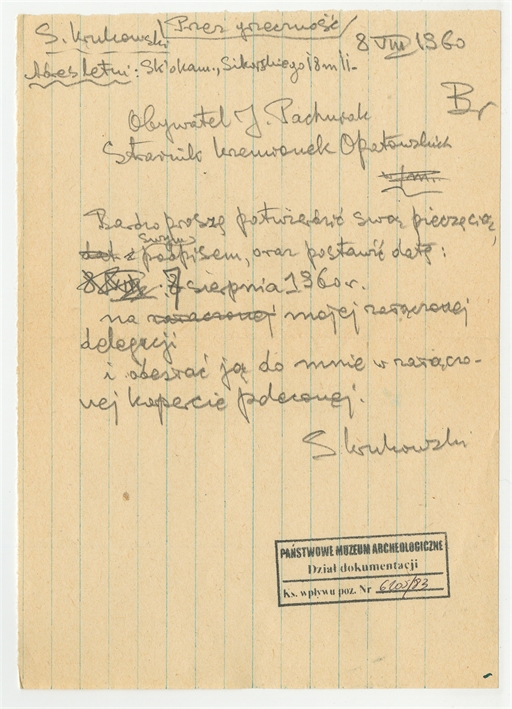 S. Krukowski /Przez grzeczność/ 8 VIII 1960
Adres letni: Sk'okam., Sikorskiego 18 m 11-
Br
Obywatel J. Pachurak
Strażnik Krzemionek Opatowskich
Bardzo proszę potwierdzić swoją pieczęcią,
swym
podpisem, oraz postawić datę:
8 VIII. 7 sierpnia 1960 r.
na załączonej mojej załączonej
delegacji
i odesłać ją do mnie w załączo-
nej kopercie poleconej.
S Krukowski
PAŃSTWOWE MUZEUM ARCHEOLOGICZNE
Dział dokumentacji
Ks. wpływu poz. Nr 6205/83